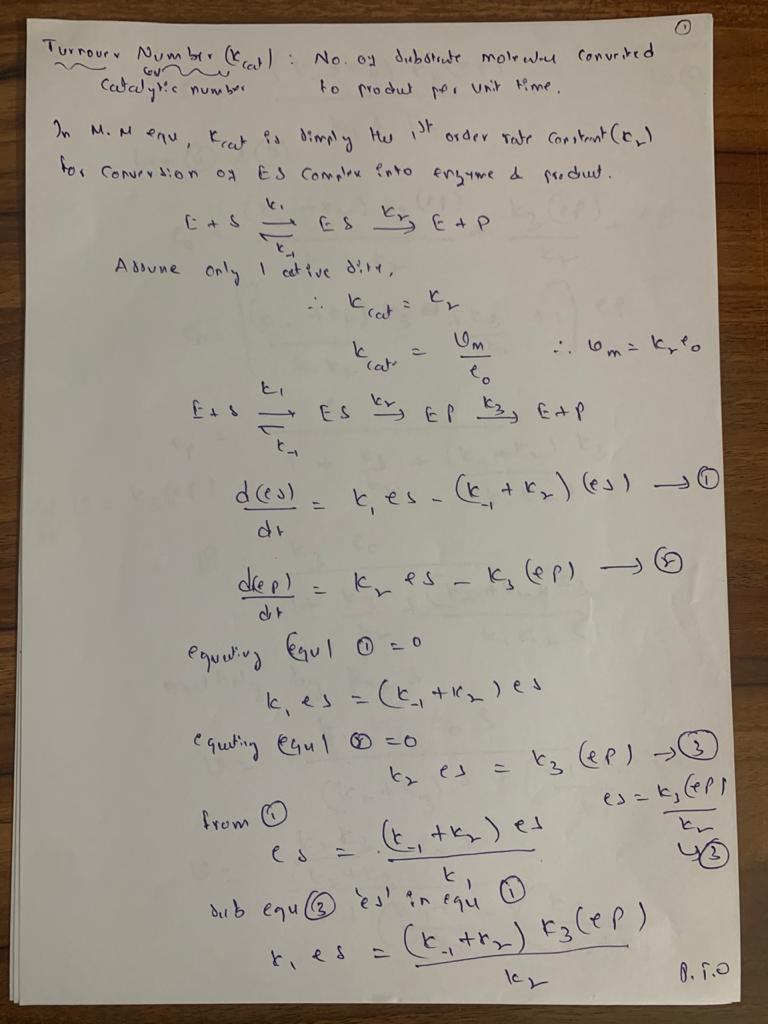 ①
Turnover Number (Kcat) : No. of substrate molecules converted
(or)
Catalytic number to product per unit time.
In M.M equ, Kcat is simply the 1st order rate constant (K2)
for conversion of ES complex into enzyme & product.
E + S ⇌ ES → E + P (K1, K-1, K2)
Assume only 1 active site,
∴ Kcat = K2
Kcat = υm / e0 ∴ υm = K2 e0
E + S ⇌ ES → EP → E + P (K1, K-1, K2, K3)
d(es)/dt = K1 es - (K-1 + K2) (es) → ①
d(ep)/dt = K2 es - K3 (ep) → ②
equating Equ1 ① = 0
K1 es = (K-1 + K2) es
equating Equ1 ② = 0
K2 es = K3 (ep) → ③
es = K3 (ep) / K2 ↳ ③
from ①
es = (K-1 + K2) es / K1
sub equ ③ 'es' in equ ①
K1 es = (K-1 + K2) K3 (ep) / K2
P.T.O